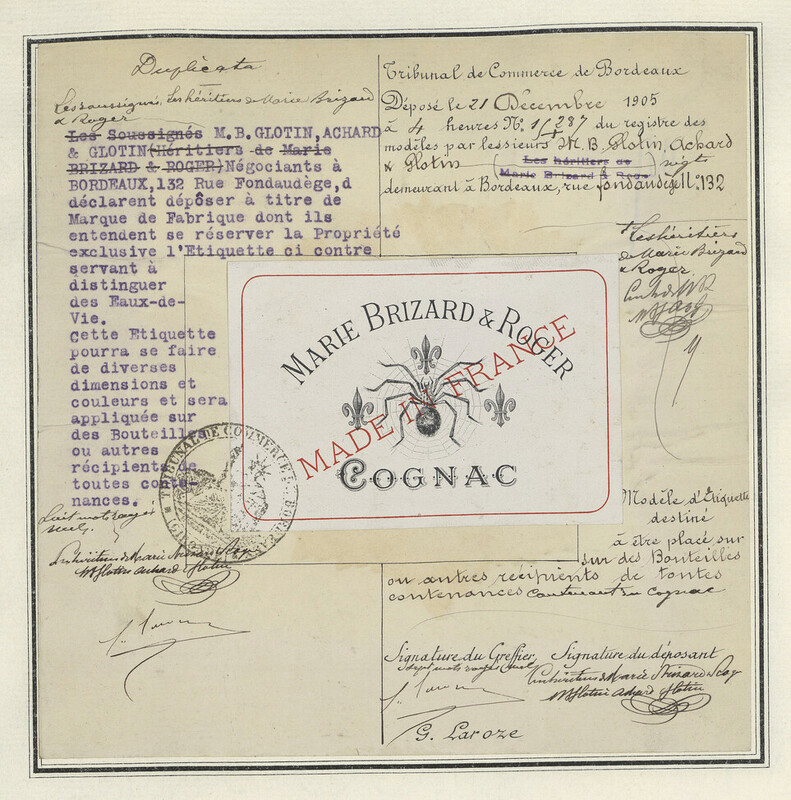 Duplicata
Les soussignés, Les héritiers de Marie Brizard
& Roger
Les Soussignés M.B.GLOTIN,ACHARD
& GLOTIN(Héritiers de Marie
BRIZARD & ROGER)Négociants à
BORDEAUX,132 Rue Fondaudège,d
déclarent dépôser à titre de
Marque de Fabrique dont ils
entendent se réserver la Propriété
exclusive l'Etiquette ci contre
servant à
distinguer
des Eaux-de-
Vie.
Cette Etiquette
pourra se faire
de diverses
dimensions et
couleurs et sera
appliquée sur
des Bouteilles
ou autres
récipients de
toutes conte-
nances.
Huit mots rayés
nuls.
Les héritiers de Marie Brizard & Roger
M B Glotin Achard & Glotin
Tribunal de Commerce de Bordeaux
Déposé le 21 Décembre 1905
à 4 heures N° 1/287 du registre des
modèles par les sieurs M. B. Glotin, Achard
& Glotin (Les héritiers de
Marie Brizard & Roger) négts
demeurant à Bordeaux, rue fondaudège N° 132
+ Les héritiers
de Marie Brizard
& Roger.
MARIE BRIZARD & ROGER
MADE IN FRANCE
COGNAC
TRIBUNAL DE COMMERCE
Modèle d'Etiquette
destiné
à être placé sur
sur des Bouteilles
ou autres récipients de toutes
contenances contenant du cognac
Signature du Greffier, Signature du déposant
sept mots rayés nuls
Les héritiers de Marie Brizard & Roger
M B Glotin Achard & Glotin
G. Laroze